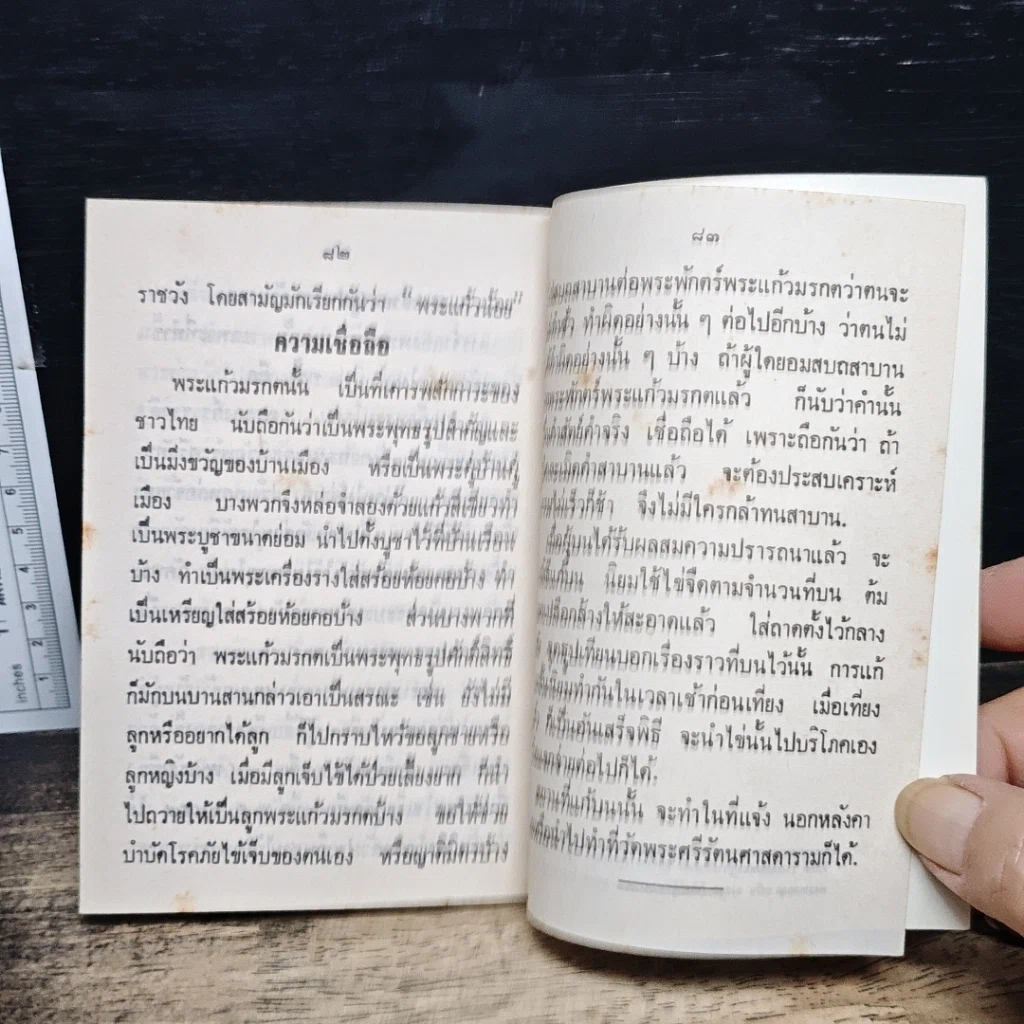 ๘๒
ราชวัง โดยสามัญมักเรียกกันว่า "พระแก้วน้อย"
ความเชื่อถือ
พระแก้วมรกตนั้น เป็นที่เคารพสักการะของ
ชาวไทย นับถือกันว่าเป็นพระพุทธรูปสำคัญและ
เป็นมิ่งขวัญของบ้านเมือง หรือเป็นพระคู่บ้านคู่
เมือง บางพวกจึงหล่อจำลองด้วยแก้วสีเขียวทำ
เป็นพระบูชาขนาดย่อม นำไปตั้งบูชาไว้ที่บ้านเรือน
บ้าง ทำเป็นพระเครื่องรางใส่สร้อยห้อยคอบ้าง ทำ
เป็นเหรียญใส่สร้อยห้อยคอบ้าง ส่วนบางพวกที่
นับถือว่า พระแก้วมรกตเป็นพระพุทธรูปศักดิ์สิทธิ์
ก็มักบนบานสานกล่าวเอาเป็นสรณะ เช่น ยังไม่มี
ลูกหรืออยากได้ลูก ก็ไปกราบไหว้ขอลูกชายหรือ
ลูกหญิงบ้าง เมื่อมีลูกเจ็บไข้ได้ป่วยเลี้ยงยาก ก็นำ
ไปถวายให้เป็นลูกพระแก้วมรกตบ้าง ขอให้ช่วย
บำบัดโรคภัยไข้เจ็บของตนเอง หรือญาติมิตรบ้าง
๘๓
สาบานต่อพระพักตร์พระแก้วมรกตว่าตนจะ
ทำผิดอย่างนั้น ๆ ต่อไปอีกบ้าง ว่าตนไม่
ผิดอย่างนั้น ๆ บ้าง ถ้าผู้ใดยอมสบถสาบาน
พระพักตร์พระแก้วมรกตแล้ว ก็นับว่าคำนั้น
คำจริง เชื่อถือได้ เพราะถือกันว่า ถ้า
คำสาบานแล้ว จะต้องประสบเคราะห์
ไม่เร็วก็ช้า จึงไม่มีใครกล้าทนสาบาน.
ผู้บนได้รับผลสมความปรารถนาแล้ว จะ
นิยมใช้ไข่จืดตามจำนวนที่บน ต้ม
ล้างให้สะอาดแล้ว ใส่ถาดตั้งไว้กลาง
จุดธูปเทียนบอกเรื่องราวที่บนไว้นั้น การแก้
นิยมทำกันในเวลาเช้าก่อนเที่ยง เมื่อเที่ยง
ก็เป็นอันเสร็จพิธี จะนำไข่นั้นไปบริโภคเอง
แจกจ่ายต่อไปก็ได้.
ที่แก้บนนั้น จะทำในที่แจ้ง นอกหลังคา
นำไปทำที่วัดพระศรีรัตนศาสดารามก็ได้.
inches
1
2
3
4
5
6
7